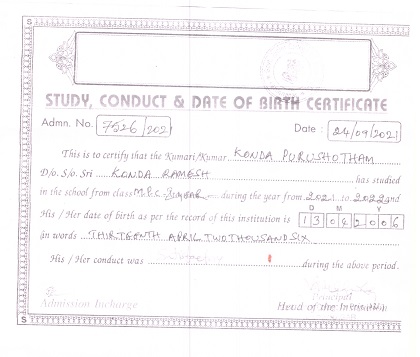 STUDY, CONDUCT & DATE OF BIRTH CERTIFICATE
Admn. No. 7526/2021 Date : 24/09/2021
This is to certify that the Kumari/Kumar KONDA PURUSHOTHAM
D/o. S/o. Sri KONDA RAMESH has studied
in the school from class M.P.C. during the year from 2021 to 2022 and
D M Y
His / Her date of birth as per the record of this institution is 13 04 2006
in words THIRTEENTH APRIL TWO THOUSAND SIX
His / Her conduct was during the above period.
Principal
Admission Incharge Head of the Institution